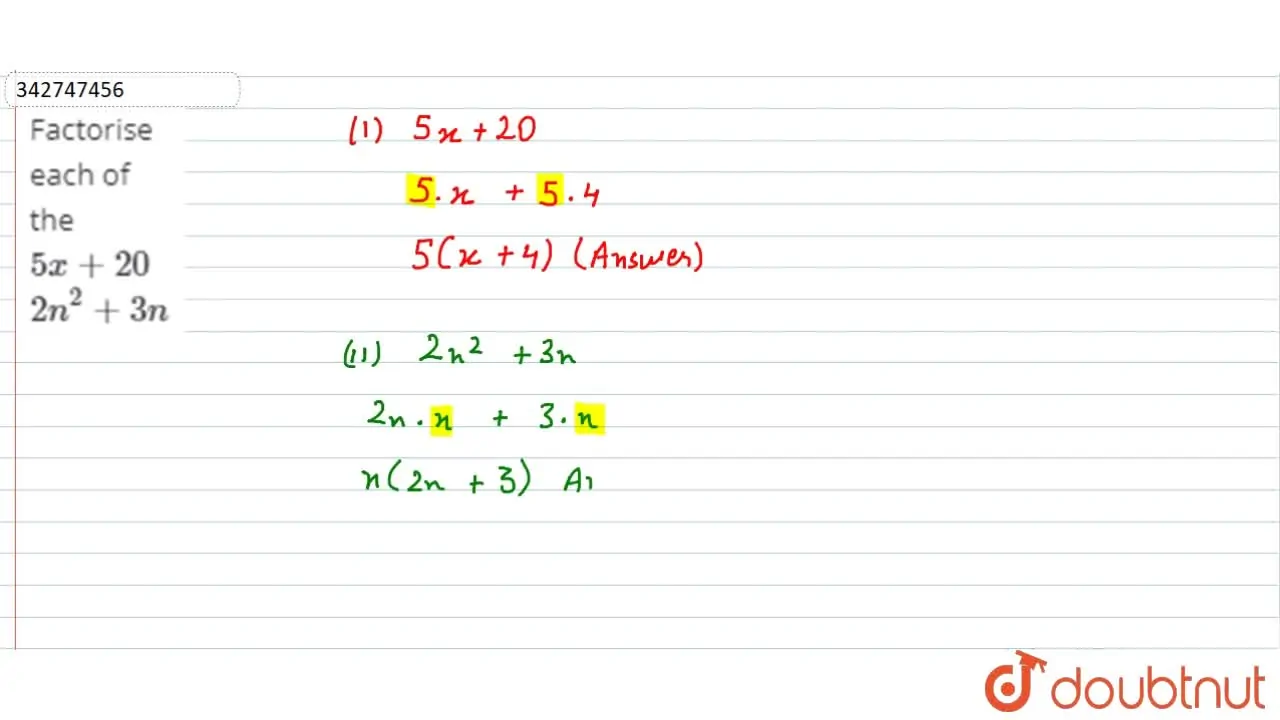 342747456
Factorise
each of
the
5x + 20
2n² + 3n
(I) 5x + 20
5.x + 5.4
5(x + 4) (Answer)
(II) 2n² + 3n
2n.n + 3.n
n(2n + 3)
doubtnut